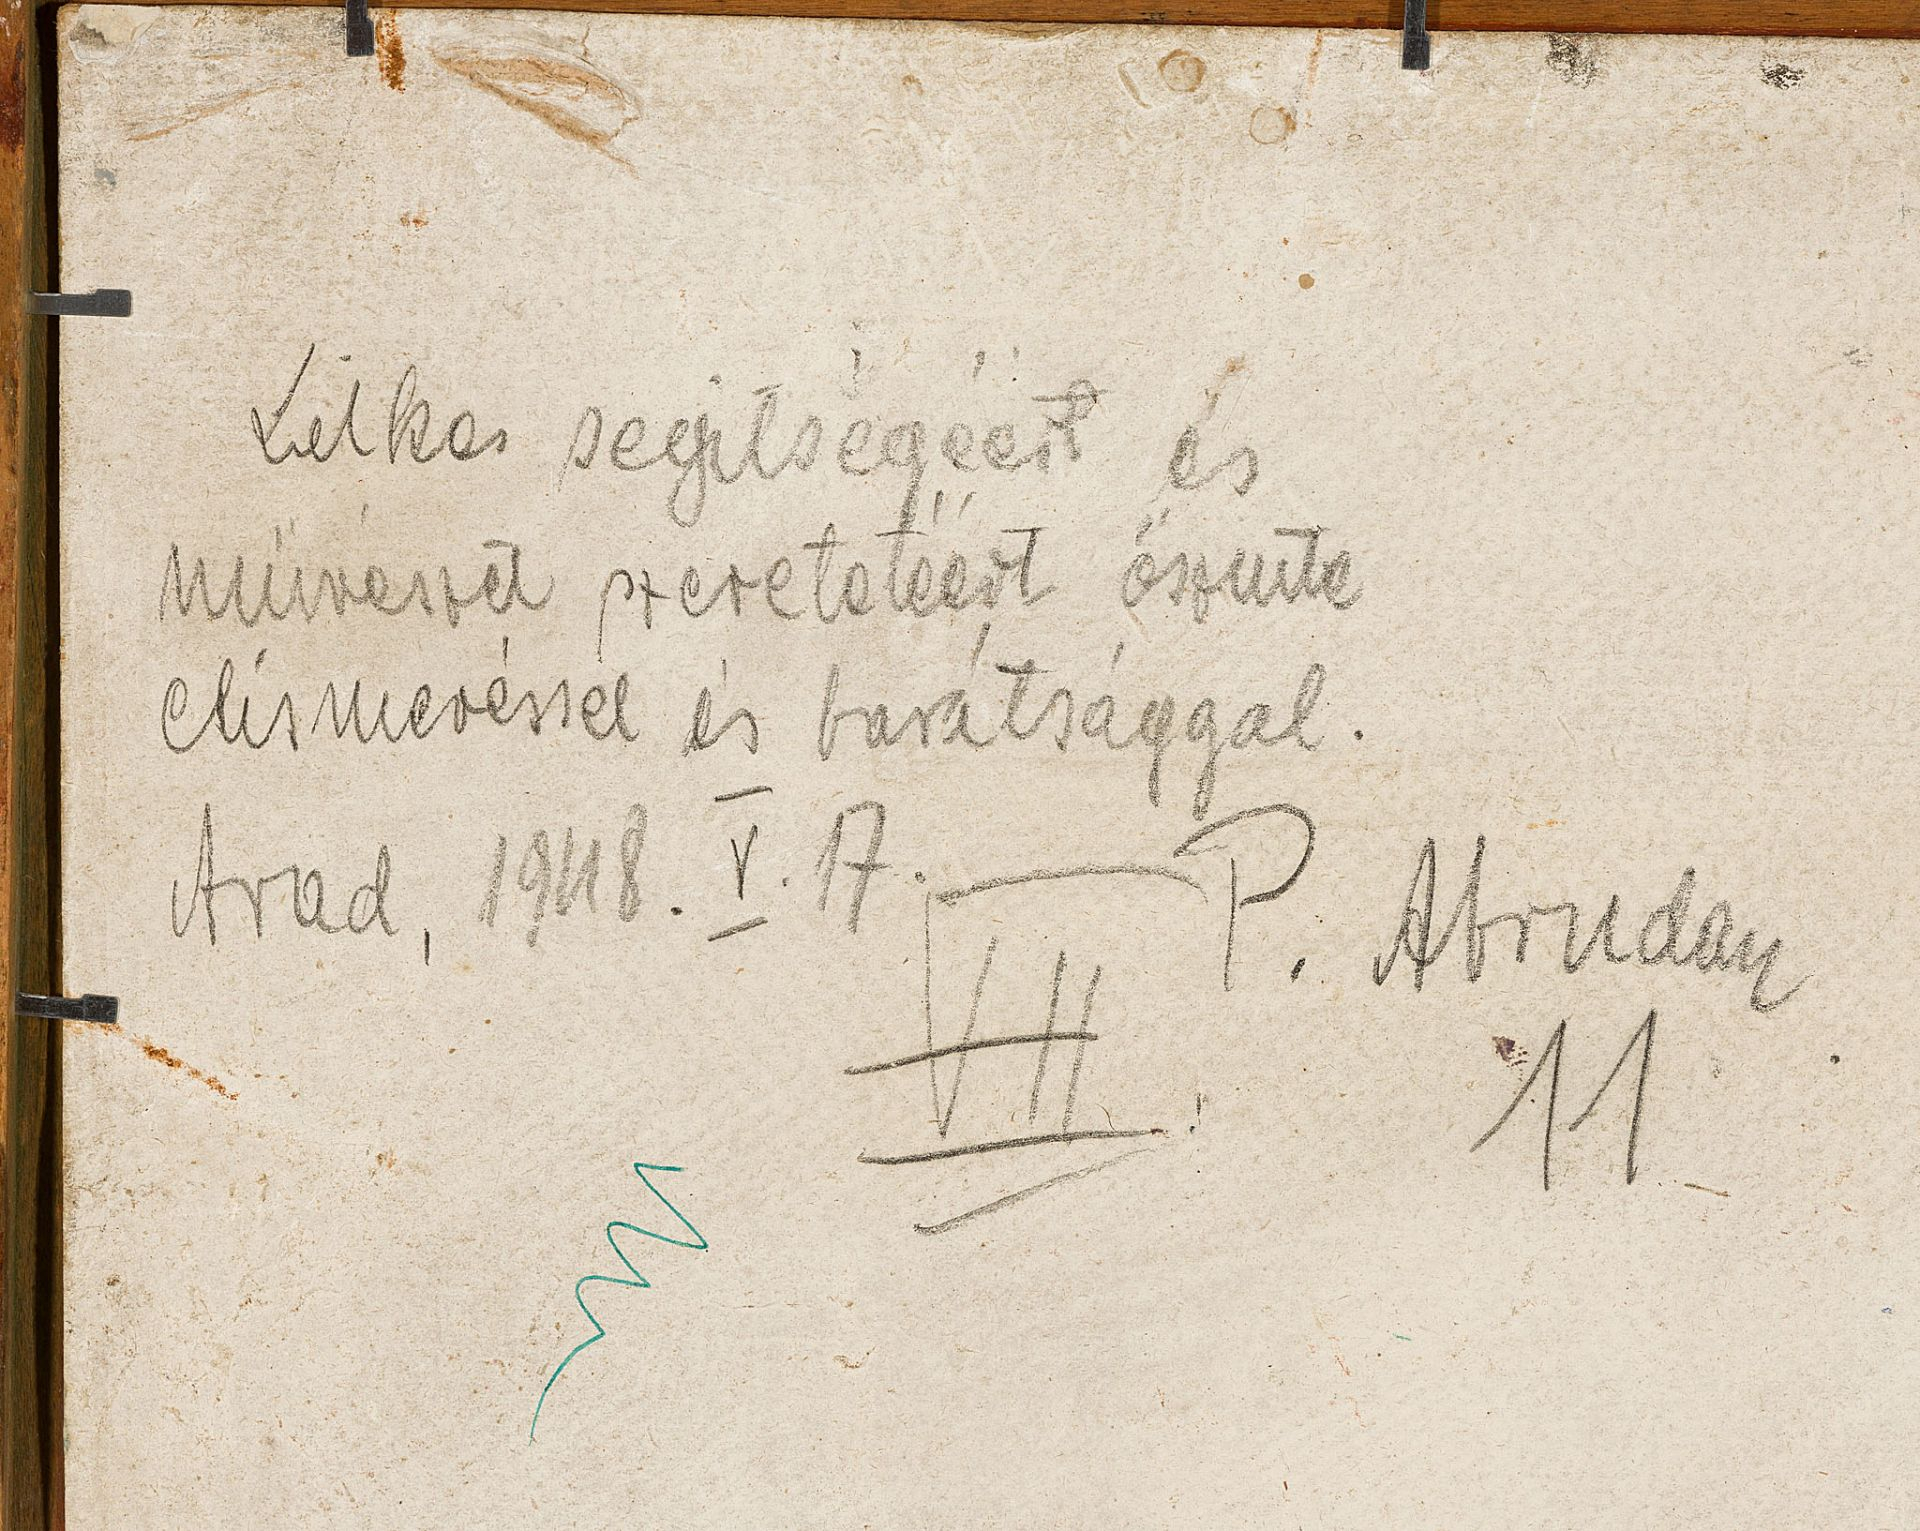 Lelkes segitségéért és
müvészet szeretetéért őszinte
elismeréssel és barátsággal.
Arad, 1948. V. 17.
P. Abrudan
VII
11